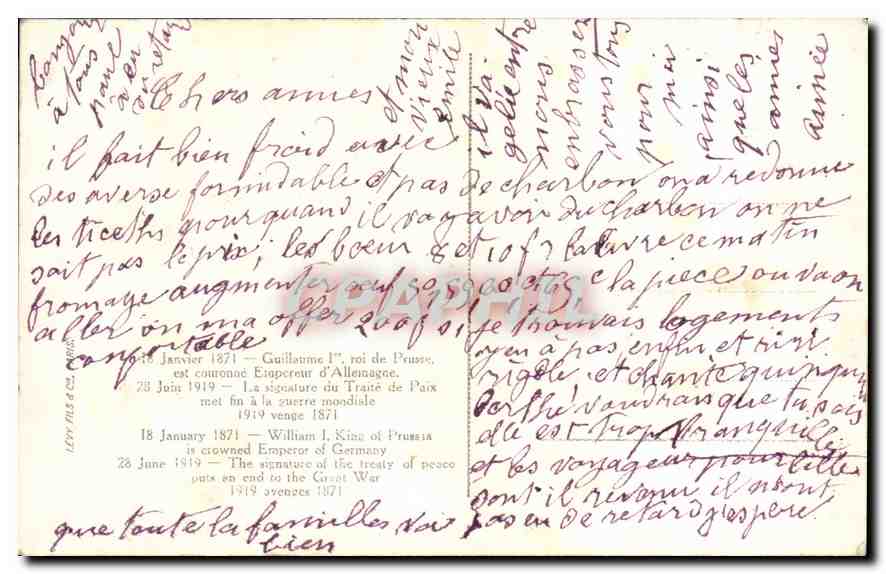 Chers amies
il fait bien froid avec
des averse formidable et pas de charbon on a redonne
les ticets pour quand il va y avoir du charbon on ne
sait pas le prix, les boeur 8 et 10 f la livre ce matin
fromage augmenter oeuf la pièce ou va on
aller on ma offer 200 f si je trouvais logements
confortable
y en à pas enfin et rire
rigole et chante quinquin
berthe voudrais que tu sois
elle est trop tranquille
et les voyageur pour lille
sont il revenu il n'ont
pas eu de retard j'espère
que toute la familles va
bien
bonjour
à tous
pane
à eu
du retard
et mon
vieux
emile
il va
gelé entre
nous
embrasser
vous tous
pour
moi
ainsi
que les
amies
aimée
18 Janvier 1871 — Guillaume Ier, roi de Prusse,
est couronné Empereur d'Allemagne.
28 Juin 1919 — La signature du Traité de Paix
met fin à la guerre mondiale
1919 venge 1871
18 January 1871 — William I, King of Prussia
is crowned Emperor of Germany
28 June 1919 — The signature of the treaty of peace
puts an end to the Great War
1919 avenges 1871
LEVY FILS & Co, PARIS
CPAPHIL